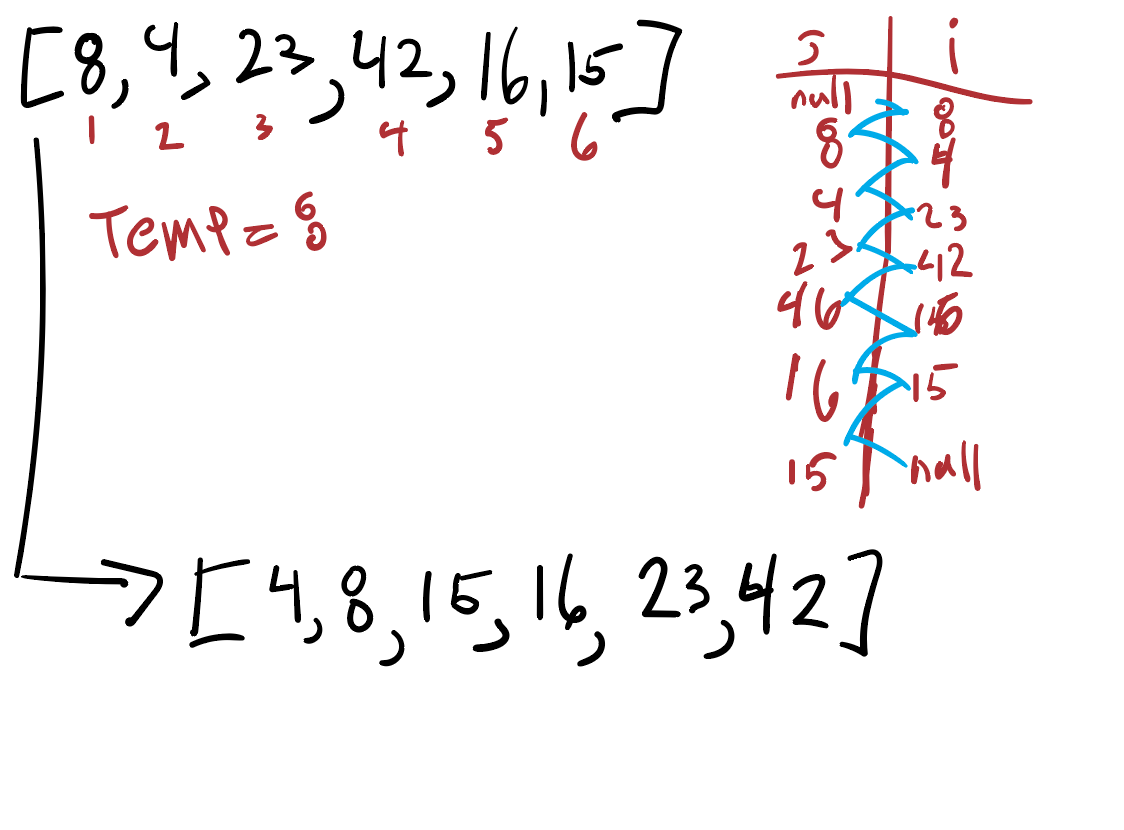 [8, 4, 23, 42, 16, 15]
1 2 3 4 5 6
Temp = 8
j i
null 8
8 4
4 23
23 42
46
16 15
15 null
[4, 8, 15, 16, 23, 42]